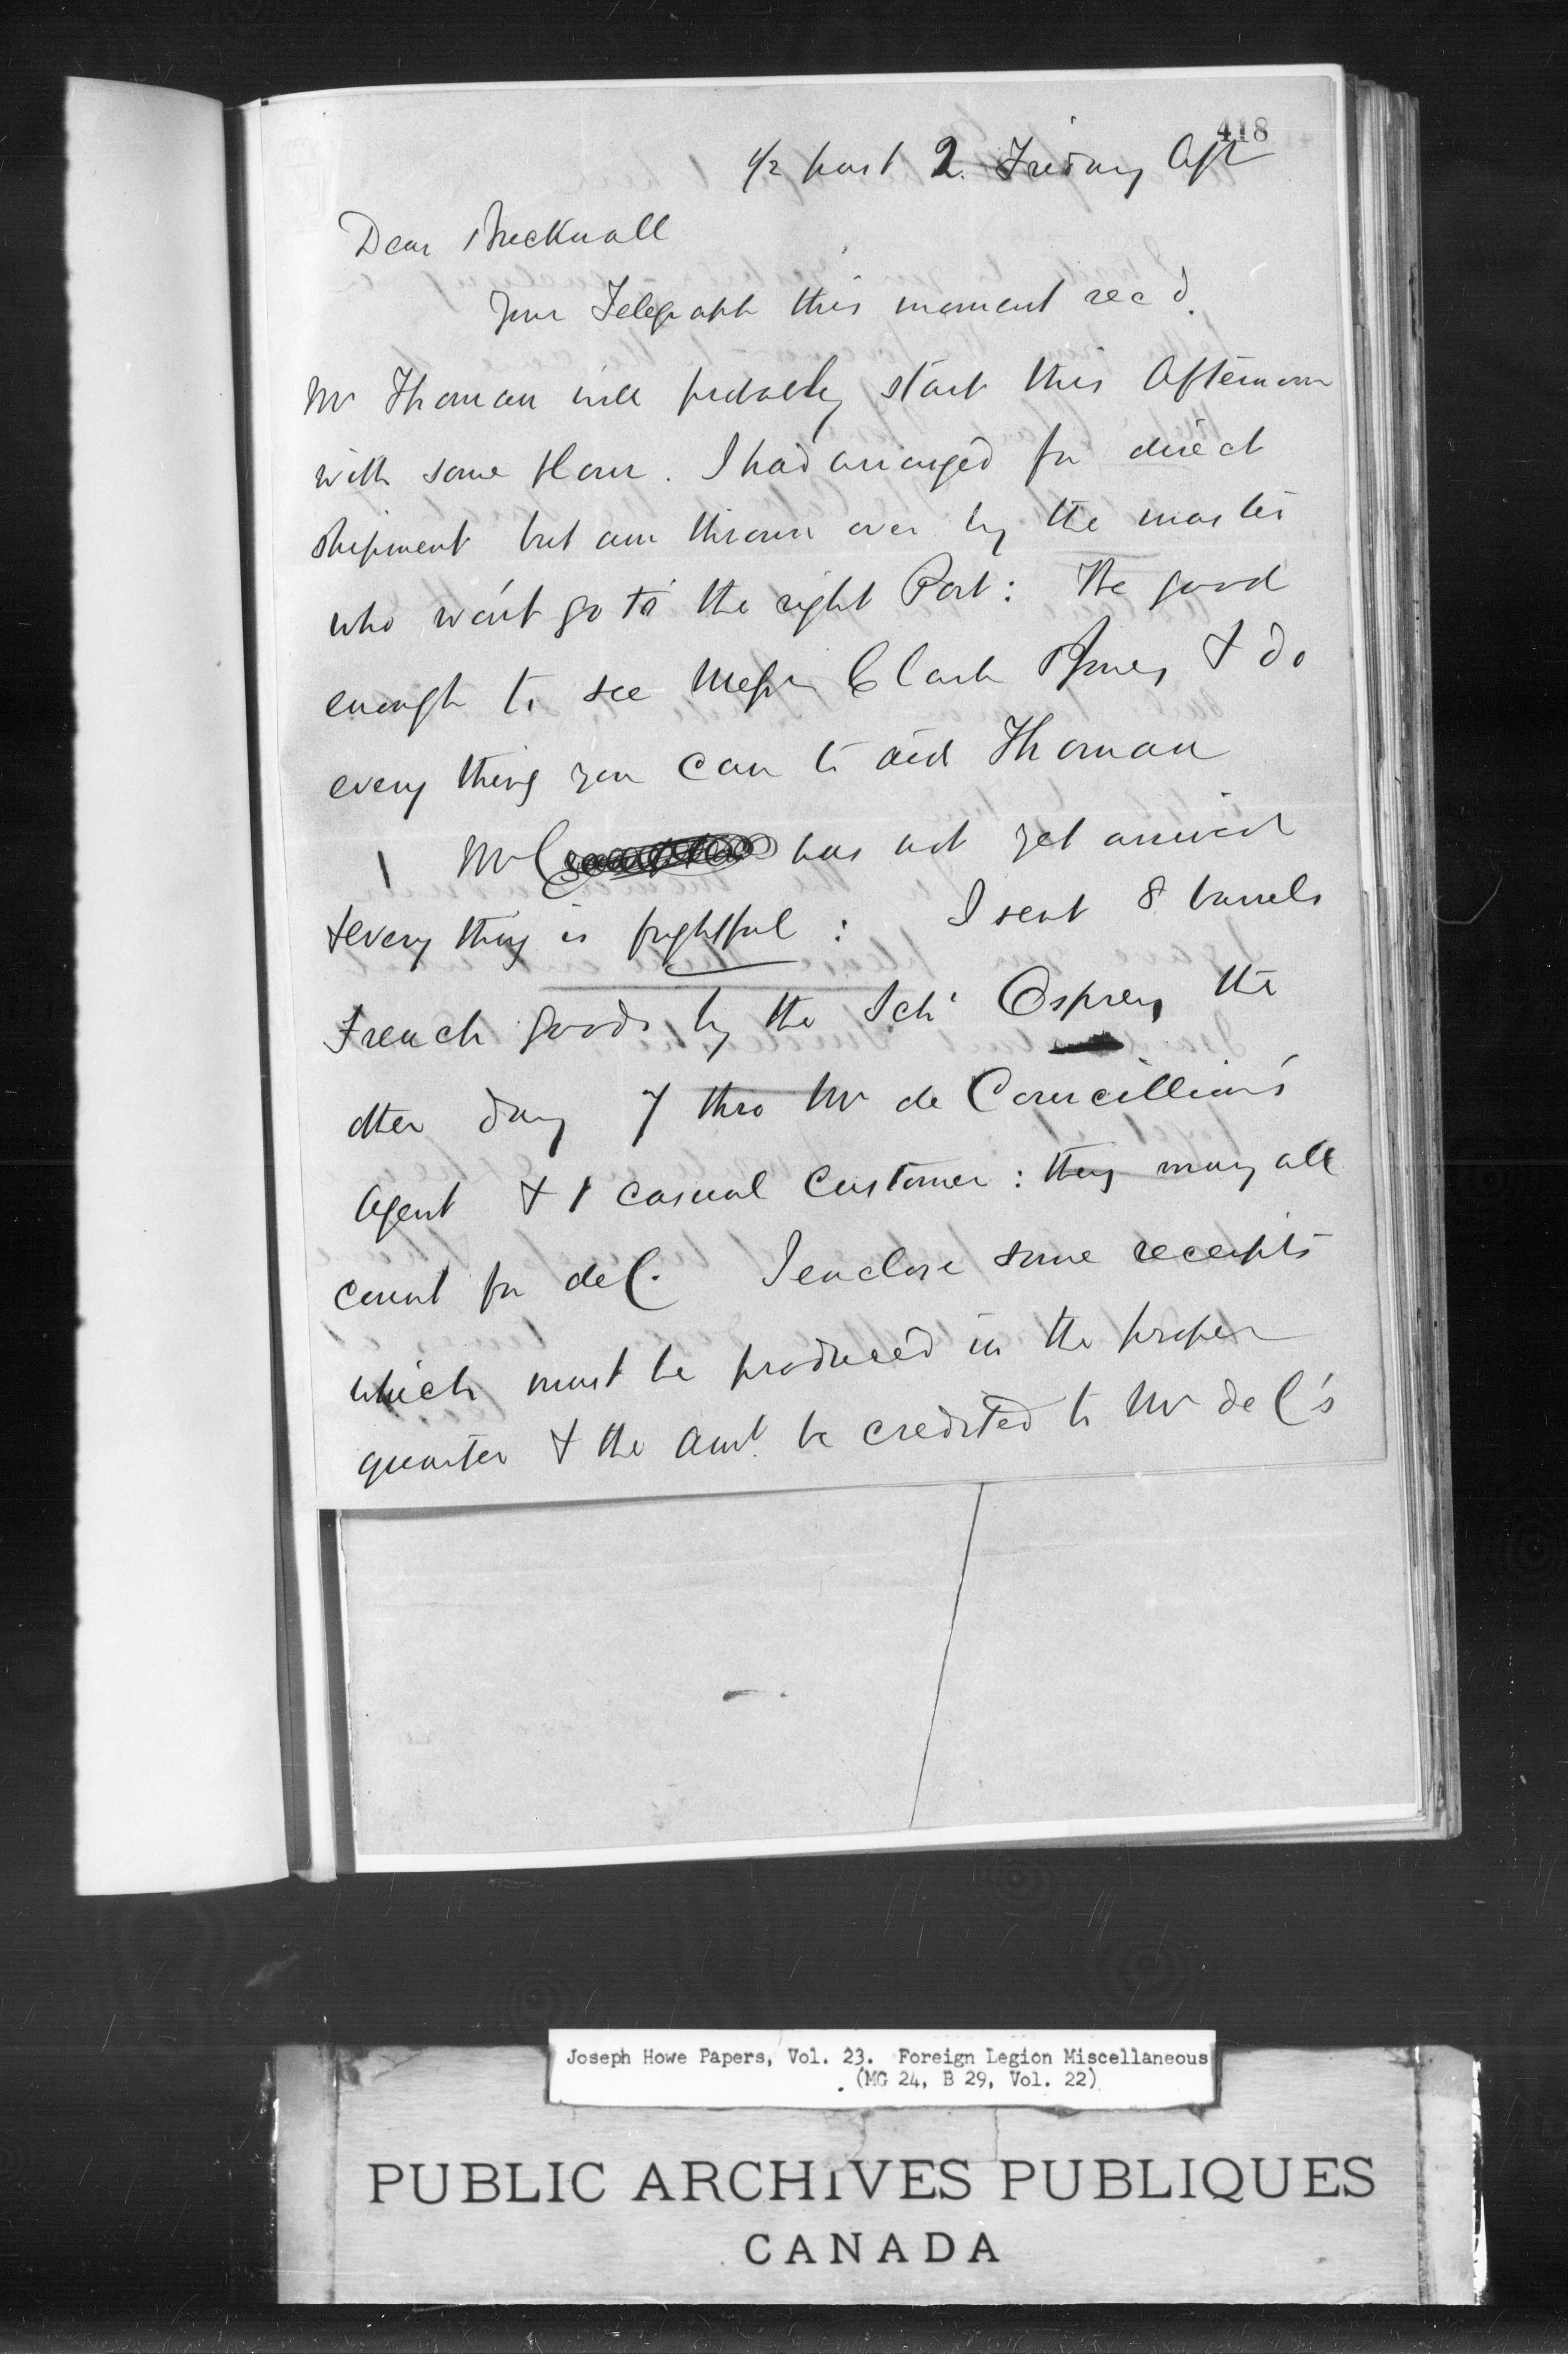 418
1/2 past 2. Friday Aft
Dear Bucknall
Your Telegraph this moment rec'd.
Mr Thoman will probably start this Afternoon
with some flour. I had arranged for direct
shipment but am thrown over by the master
who wo'nt go to the right Port: Be good
enough to see Messrs Clark Jones & do
every thing you can to aid Thoman
Mr C has not yet arrived
& every thing is frightful: I sent 8 barrels
French goods by the Sch' Osprey the
other day 7 thro Mr de Courcillion's
Agent & 1 casual Customer: they may all
count for de C. I enclose some receipts
which must be produced in the proper
quarter & the amt. be credited to Mr de C's
Joseph Howe Papers, Vol. 23. Foreign Legion Miscellaneous
(MG 24, B 29, Vol. 22)
PUBLIC ARCHIVES PUBLIQUES
CANADA